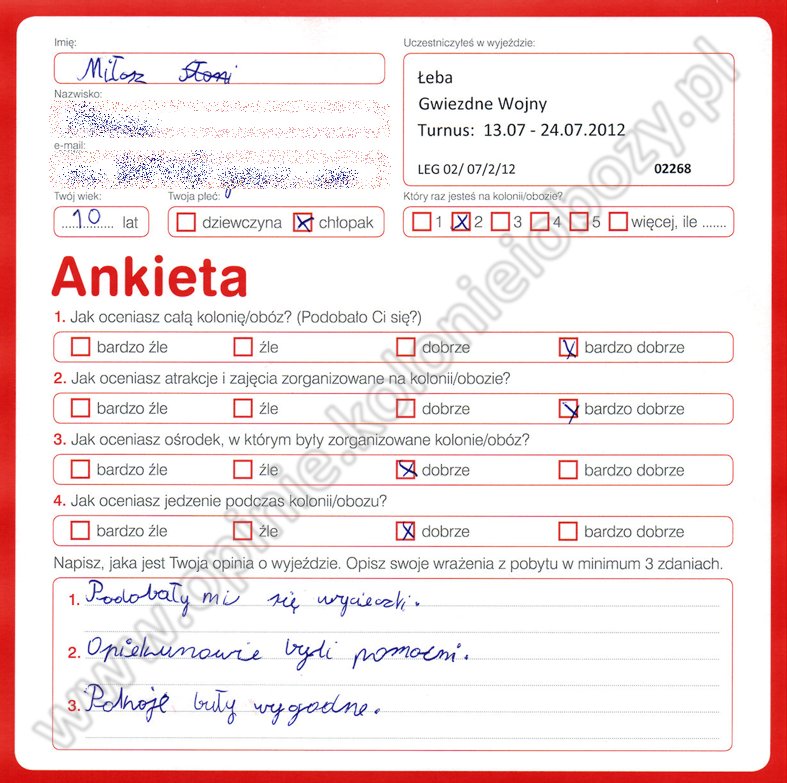 Imię:
Miłosz
Nazwisko:
e-mail:
Twój wiek:
10 lat
Twoja płeć:
dziewczyna chłopak
Uczestniczyłeś w wyjeździe:
Łeba
Gwiezdne Wojny
Turnus: 13.07 - 24.07.2012
LEG 02/ 07/2/12 02268
Który raz jesteś na kolonii/obozie?
1 2 3 4 5 więcej, ile .......
Ankieta
1. Jak oceniasz całą kolonię/obóz? (Podobało Ci się?)
bardzo źle źle dobrze bardzo dobrze
2. Jak oceniasz atrakcje i zajęcia zorganizowane na kolonii/obozie?
bardzo źle źle dobrze bardzo dobrze
3. Jak oceniasz ośrodek, w którym były zorganizowane kolonie/obóz?
bardzo źle źle dobrze bardzo dobrze
4. Jak oceniasz jedzenie podczas kolonii/obozu?
bardzo źle źle dobrze bardzo dobrze
Napisz, jaka jest Twoja opinia o wyjeździe. Opisz swoje wrażenia z pobytu w minimum 3 zdaniach.
1. Podobały mi się wycieczki.
2. Opiekunowie byli pomocni.
3. Pokoje były wygodne.
www.opinie.kolonieiobozy.pl